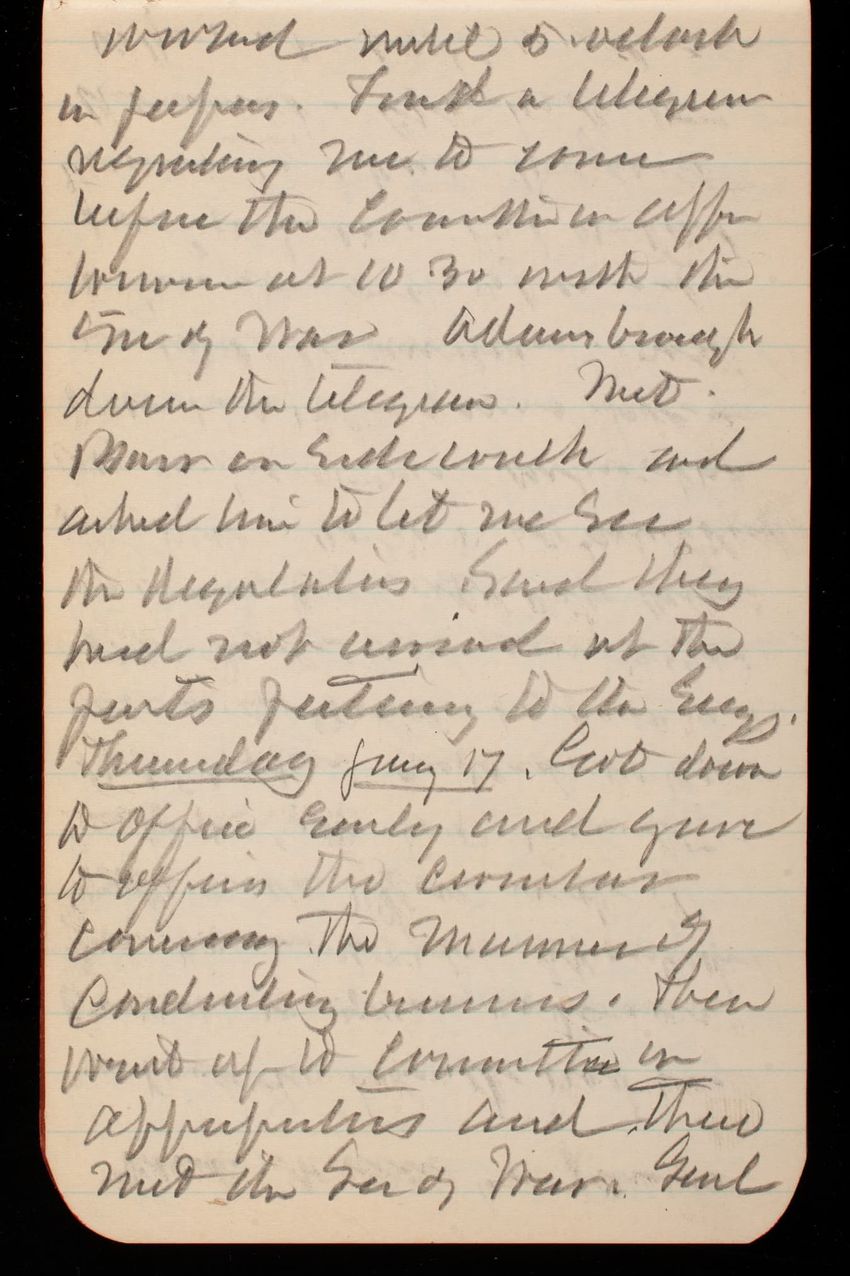 worked until 5 oclock
on papers. Found a telegram
requesting me to come
before the Committee on appro
tomorrow at 10 30 with the
Sec of War Adams brought
down the telegram. Met
on Sidewalk and
asked him to let me See
the Regulations Said they
had not arrived at the
parts pertaining to the Engs.
Thursday Jany 17. Got down
to office Early and gave
to the Circular
covering the Manner of
Conducting business. Then
went up to Committee on
appropriations and there
met the Sec of War. Genl